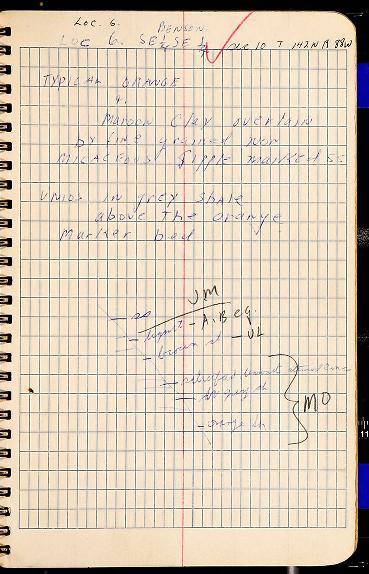 Loc. 6.
BENSON
Loc 6. SE¼ SE ¼ Sec 10 T 142 N R 88W
TYPICAL ORANGE
&
MAROON Clay overlain
by fine grained non
MICACEOUS Ripple marked SS
UNIOS in grey shale
above The orange
Marker bed
UM
- SS
- lignit - A.B eq.
- brown sh - UL
- petrified
- sh grey sh
MO
- orange